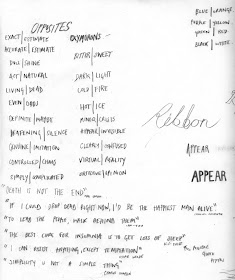 OPPOSITES
EXACT | ESTIMATE
ACCURATE | ESTIMATE
DULL | SHINE
ACT | NATURAL
LIVING | DEAD
EVEN | ODD
DEFINITE | MAYBE
DEAFENING | SILENCE
GENUINE | IMITATION
CONTROLLED | CHAOS
SIMPLY | COMPLICATED
OXYMORONS -
BITTER | SWEET
DARK | LIGHT
COLD | FIRE
HOT | ICE
MINOR | CRISIS
APPEAR | INVISIBLE
CLEARLY | CONFUSED
VIRTUAL | REALITY
ORIGINAL | OPINION
BLUE | ORANGE
PURPLE | YELLOW
GREEN | RED
BLACK | WHITE
Ribbon
APPEAR
APPEAR
"DEATH IS NOT THE END"
"IF I COULD DROP DEAD RIGHT NOW, I'D BE THE HAPPIEST MAN ALIVE"
"TO LEAD THE PEOPLE, WALK BEHIND THEM"
"THE BEST CURE FOR INSOMNIA IS TO GET LOTS OF SLEEP"
"I CAN RESIST ANYTHING, EXCEPT TEMPTATION"
"SIMPLICITY IS NOT A SIMPLE THING"